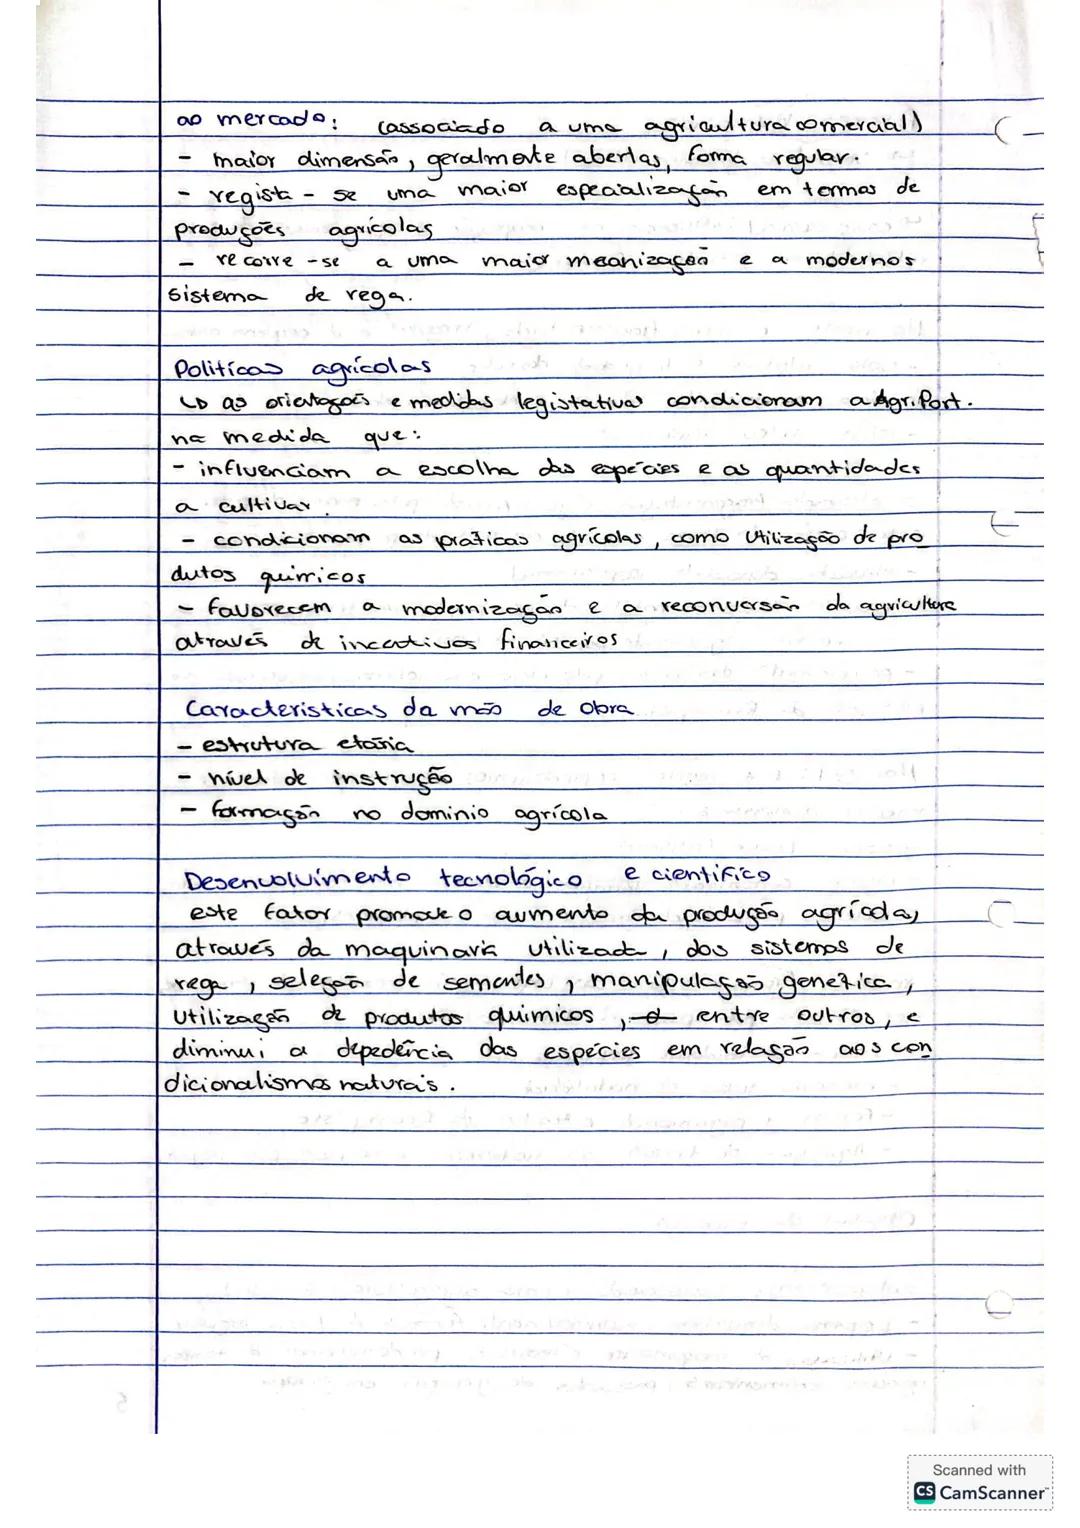 ao mercado: (associado a uma agricultura comercial)
- maior dimensão, geralmente abertas, forma regular.
- regista-se uma maior especialização em termos de
produções agrícolas
- recorre-se a uma maior mecanização e a modernos
sistema de rega.
Políticas agrícolas
↳ as orientações e medidas legislativas condicionam a Agri. Port.
na medida que:
- influenciam a escolha das espécies e as quantidades
a cultivar.
- condicionam as práticas agrícolas, como utilização de pro
dutos químicos
- favorecem a modernização e a reconversão da agricultura
através de incentivos financeiros
Características da mão de obra
- estrutura etária
- nível de instrução
- formação no dominio agrícola
Desenvolvimento tecnológico e científico
este fator promove o aumento da produção agrícola,
através da maquinaria utilizada, dos sistemas de
rega, seleção de sementes, manipulação genética,
utilização de produtos químicos, entre outros, e
diminui a depedência das espécies em relação aos con
dicionalismos naturais.
Scanned with
CS CamScanner